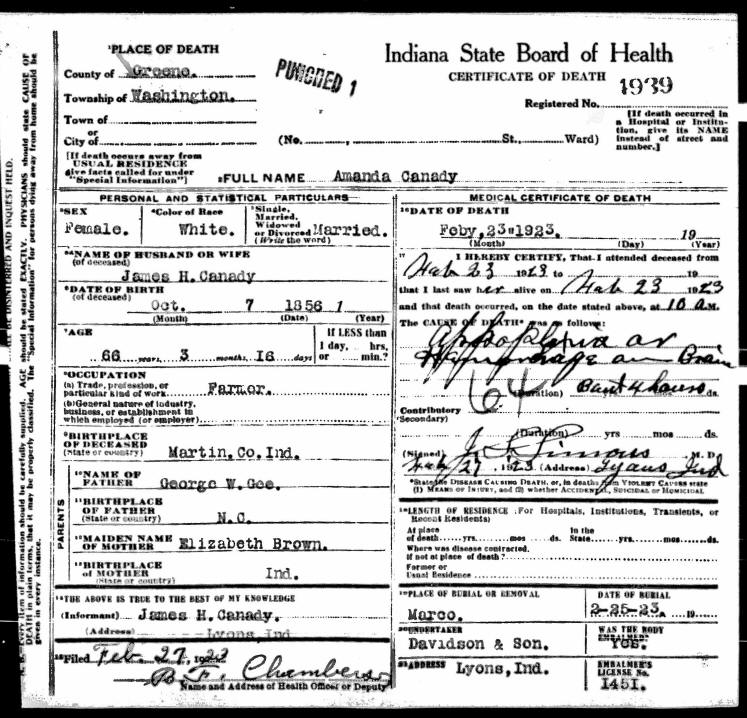 ¹PLACE OF DEATH
County of Greene.
Township of Washington.
Town of
or
City of
[If death occurs away from
USUAL RESIDENCE
give facts called for under
"Special Information"]
PUNCHED 1
Indiana State Board of Health
CERTIFICATE OF DEATH
1939
Registered No.
[If death occurred in
a Hospital or Institu-
tion, give its NAME
instead of street and
number.]
(No. , St., Ward)
²FULL NAME Amanda Canady
PERSONAL AND STATISTICAL PARTICULARS
³SEX
Female.
⁴Color of Race
White.
⁵Single,
Married,
Widowed
or Divorced Married.
(Write the word)
⁵ᵃNAME OF HUSBAND OR WIFE
(of deceased)
James H. Canady
⁶DATE OF BIRTH
(of deceased)
Oct. 7 1856 1
(Month) (Date) (Year)
⁷AGE
66 years, 3 months, 16 days
If LESS than
1 day, hrs,
or min.?
⁸OCCUPATION
(a) Trade, profession, or
particular kind of work Farmer.
(b) General nature of industry,
business, or establishment in
which employed (or employer)
⁹BIRTHPLACE
OF DECEASED
(State or country)
Martin, Co. Ind.
PARENTS
¹⁰NAME OF
FATHER George W. Gee.
¹¹BIRTHPLACE
OF FATHER
(State or country) N.C.
¹²MAIDEN NAME
OF MOTHER Elizabeth Brown.
¹³BIRTHPLACE
OF MOTHER
(State or country) Ind.
¹⁴THE ABOVE IS TRUE TO THE BEST OF MY KNOWLEDGE
(Informant) James H. Canady.
(Address) Lyons, Ind
¹⁵Filed Feb. 27, 1923
B. F. Chambers
Name and Address of Health Officer or Deputy
MEDICAL CERTIFICATE OF DEATH
¹⁶DATE OF DEATH
Feby, 23" 1923. 19
(Month) (Day) (Year)
¹⁷I HEREBY CERTIFY, That I attended deceased from
Feb 23 1923 to 19
that I last saw her alive on Feb 23 1923
and that death occurred, on the date stated above, at 10 a.M.
The CAUSE OF DEATH* was as follows:
or
Brain
64
(Duration) 4 hours ds.
Contributory
(Secondary)
(Duration) yrs mos ds.
(Signed) M. D.
Feb/27 1923 (Address) Lyons Ind
*State the DISEASE CAUSING DEATH, or, in deaths from VIOLENT CAUSES state
(1) MEANS OF INJURY, and (2) whether ACCIDENTAL, SUICIDAL OR HOMICIDAL
¹⁸LENGTH OF RESIDENCE (For Hospitals, Institutions, Transients, or
Recent Residents)
At place
of death yrs. mos ds.
In the
State yrs. mos. ds.
Where was disease contracted,
if not at place of death?
Former or
Usual Residence
¹⁹PLACE OF BURIAL OR REMOVAL
Marco.
DATE OF BURIAL
2-25-23. 19
²⁰UNDERTAKER
Davidson & Son.
WAS THE BODY
EMBALMED?
Yes.
²¹ADDRESS Lyons, Ind.
EMBALMER'S
LICENSE No.
1451.
BE DISINTERRED AND INQUEST HELD.
N. B.—Every item of information should be carefully supplied. AGE should be stated EXACTLY. PHYSICIANS should state CAUSE OF
DEATH in plain terms, that it may be properly classified. The "Special Information" for persons dying away from home should be
given in every instance.